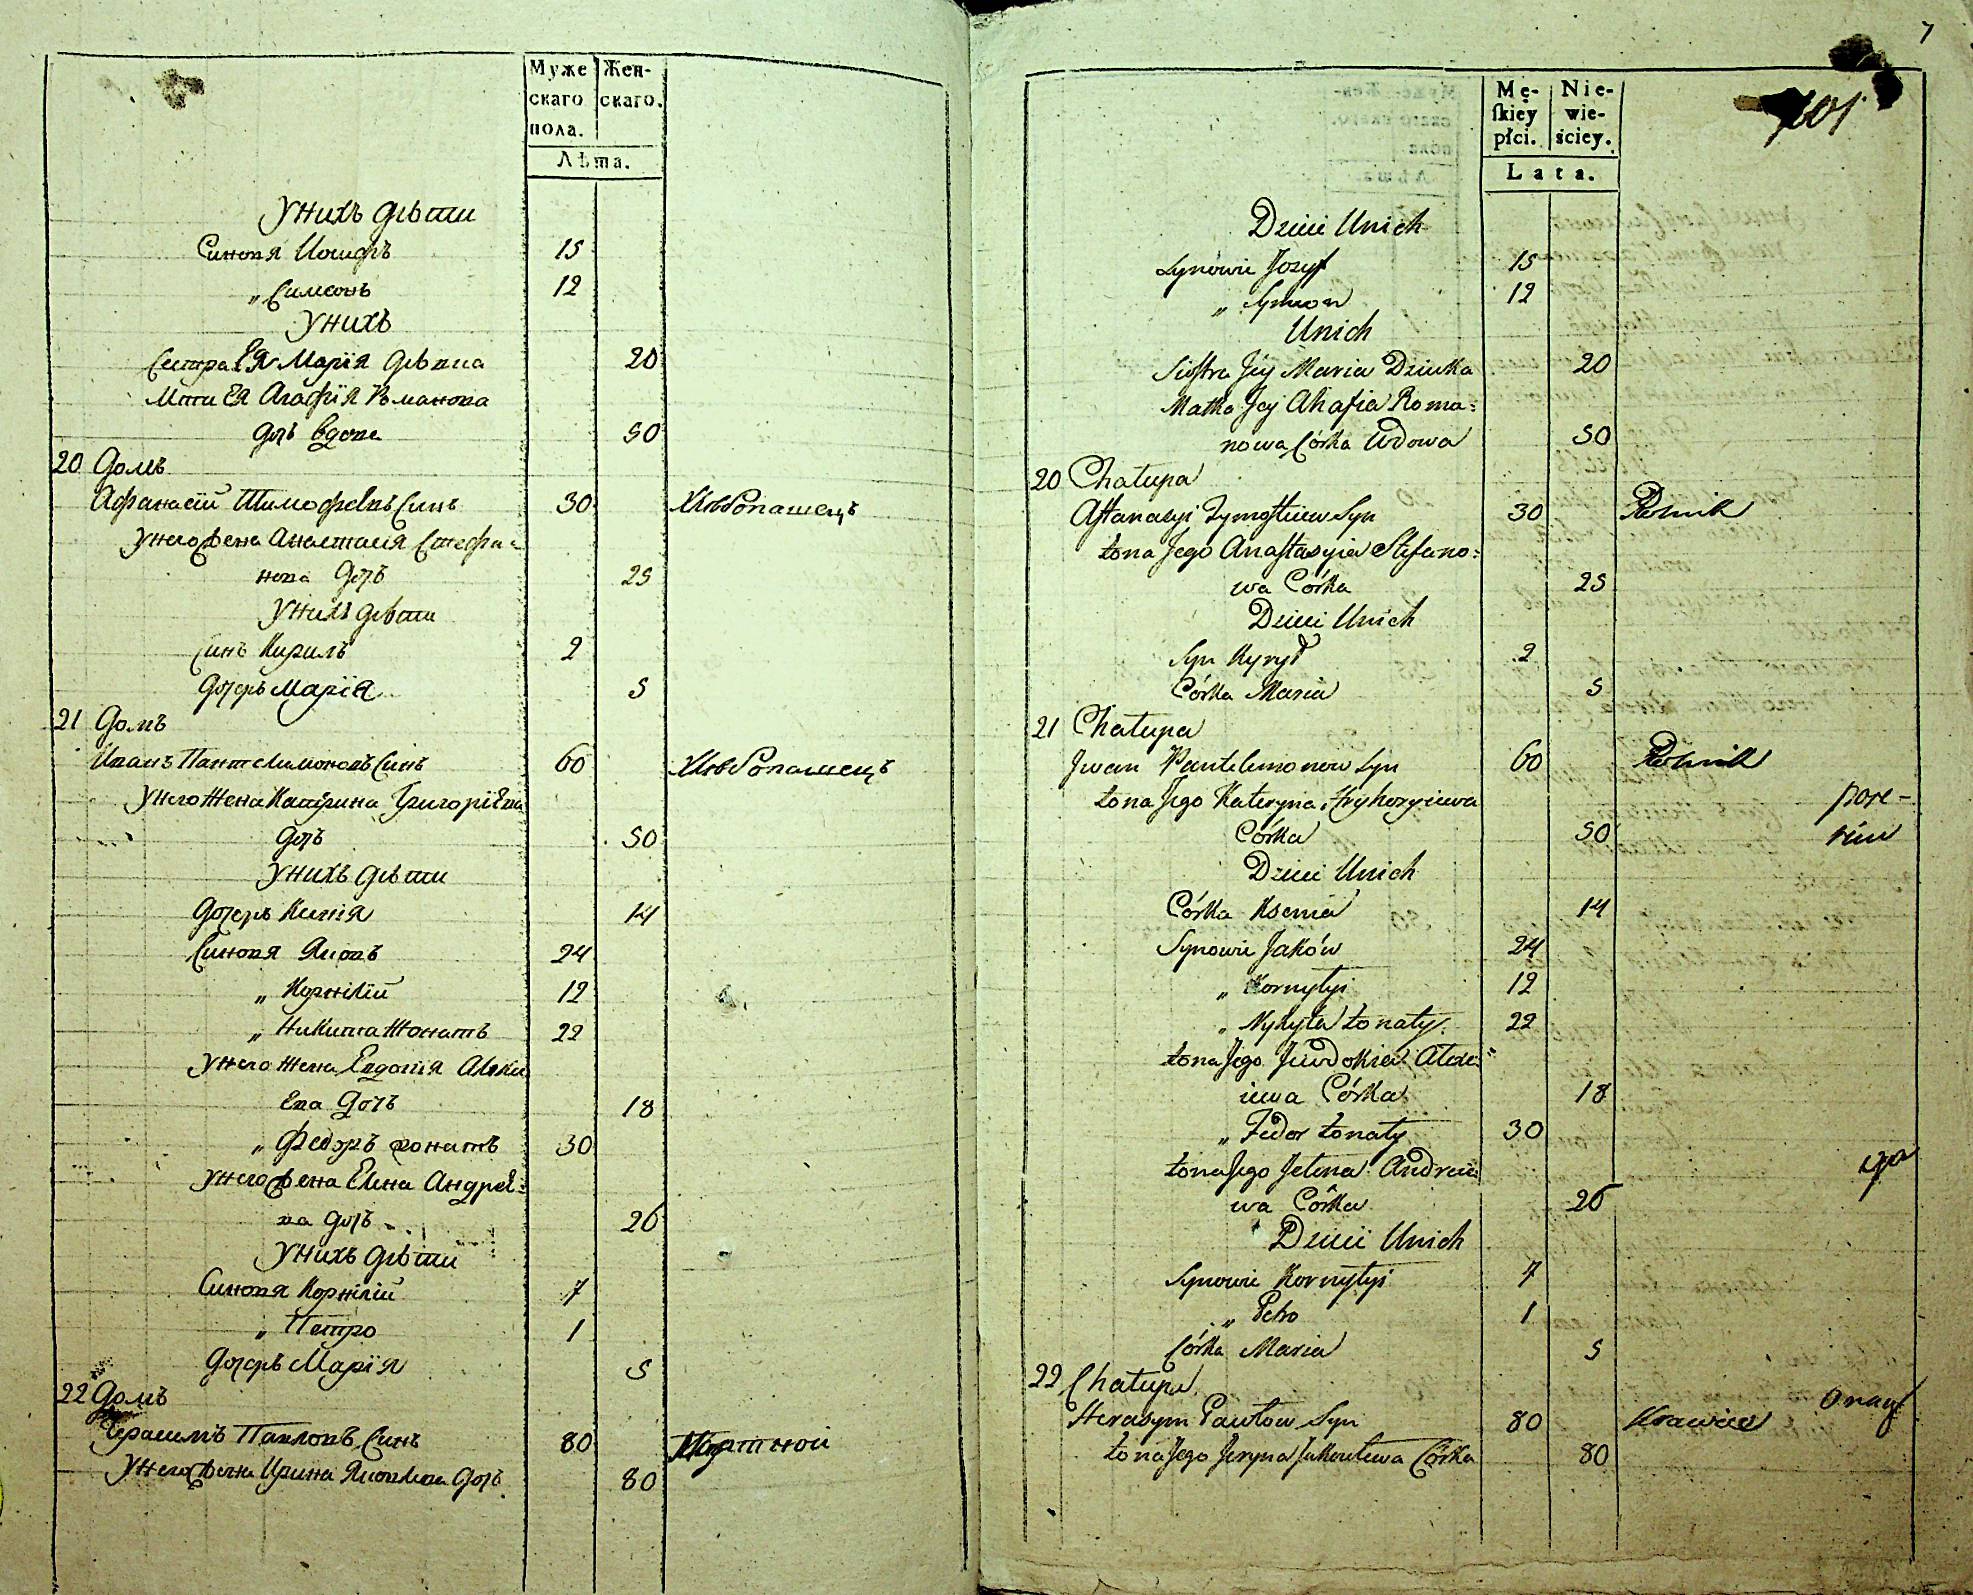 Муже Жен-
скаго скаго.
пола.
Лѣта.
У нихъ дѣти
Синовя Иосифъ 15
„ Симеонъ 12
У нихъ
Сестра Ея Марія дѣвка 20
Мати Ея Агафія Романова
дочь вдова 50
20 Домъ
Афанасій Тимофѣевъ Синъ 30 Хлѣбопашецъ
У него жена Анастасія Стефа-
нова дочь 25
У нихъ дѣти
Синъ Кирилъ 2
Дочерь Марія 5
21 Домъ
Иванъ Пантелимоновъ Синъ 60 Хлѣбопашецъ
У него жена Катерина Григоріева
дочь 50
У нихъ дѣти
Дочерь Ксенія 14
Синовя Яковъ 24
„ Корнілій 12
„ Никита жонатъ 22
У него жена Евдокія Алекси
ева дочь 18
„ Федоръ жонатъ 30
У него жена Елена Андрее-
ва дочь 26
У нихъ дѣти
Синовя Корнілій 7
„ Петро 1
Дочерь Марія 5
22 Домъ
Герасимъ Павловъ Синъ 80 Портной
У него жена Ирина Яковлева дочь 80
7
Mę- Nie-
skiey wie-
płci. ściey.
Lata.
701
Dzieci Unich
Synowie Jozyf 15
„ Symeon 12
Unich
Siostra Jey Maria Dziewka 20
Matka Jey Ahafia Roma-
nowa Córka Wdowa 50
20 Chałupa
Aftanasyi Tymofiiew Syn 30 Rolnik
Żona Jego Anastasyia Stefano-
wa Córka 25
Dzieci Unich
Syn Kyrył 2
Córka Maria 5
21 Chałupa
Iwan Pantelimonow Syn 60 Rolnik
Żona Jego Kateryna Hryhoryiewa
Córka 50
Dzieci Unich
Córka Ksenia 14
Synowie Jaków 24
„ Kornyłyi 12
„ Nykyta żonaty 22
Żona Jego Jewdokia Alexi-
iewa Córka 18
„ Fedor żonaty 30
Żona Jego Jelena Andreiе-
wa Córka 26
Dzieci Unich
Synowie Kornyłyi 7
„ Petro 1
Córka Maria 5
22 Chałupa
Herasym Pawłow Syn 80 Krawiec
Żona Jego Jeryna Jakowlewa Córka 80